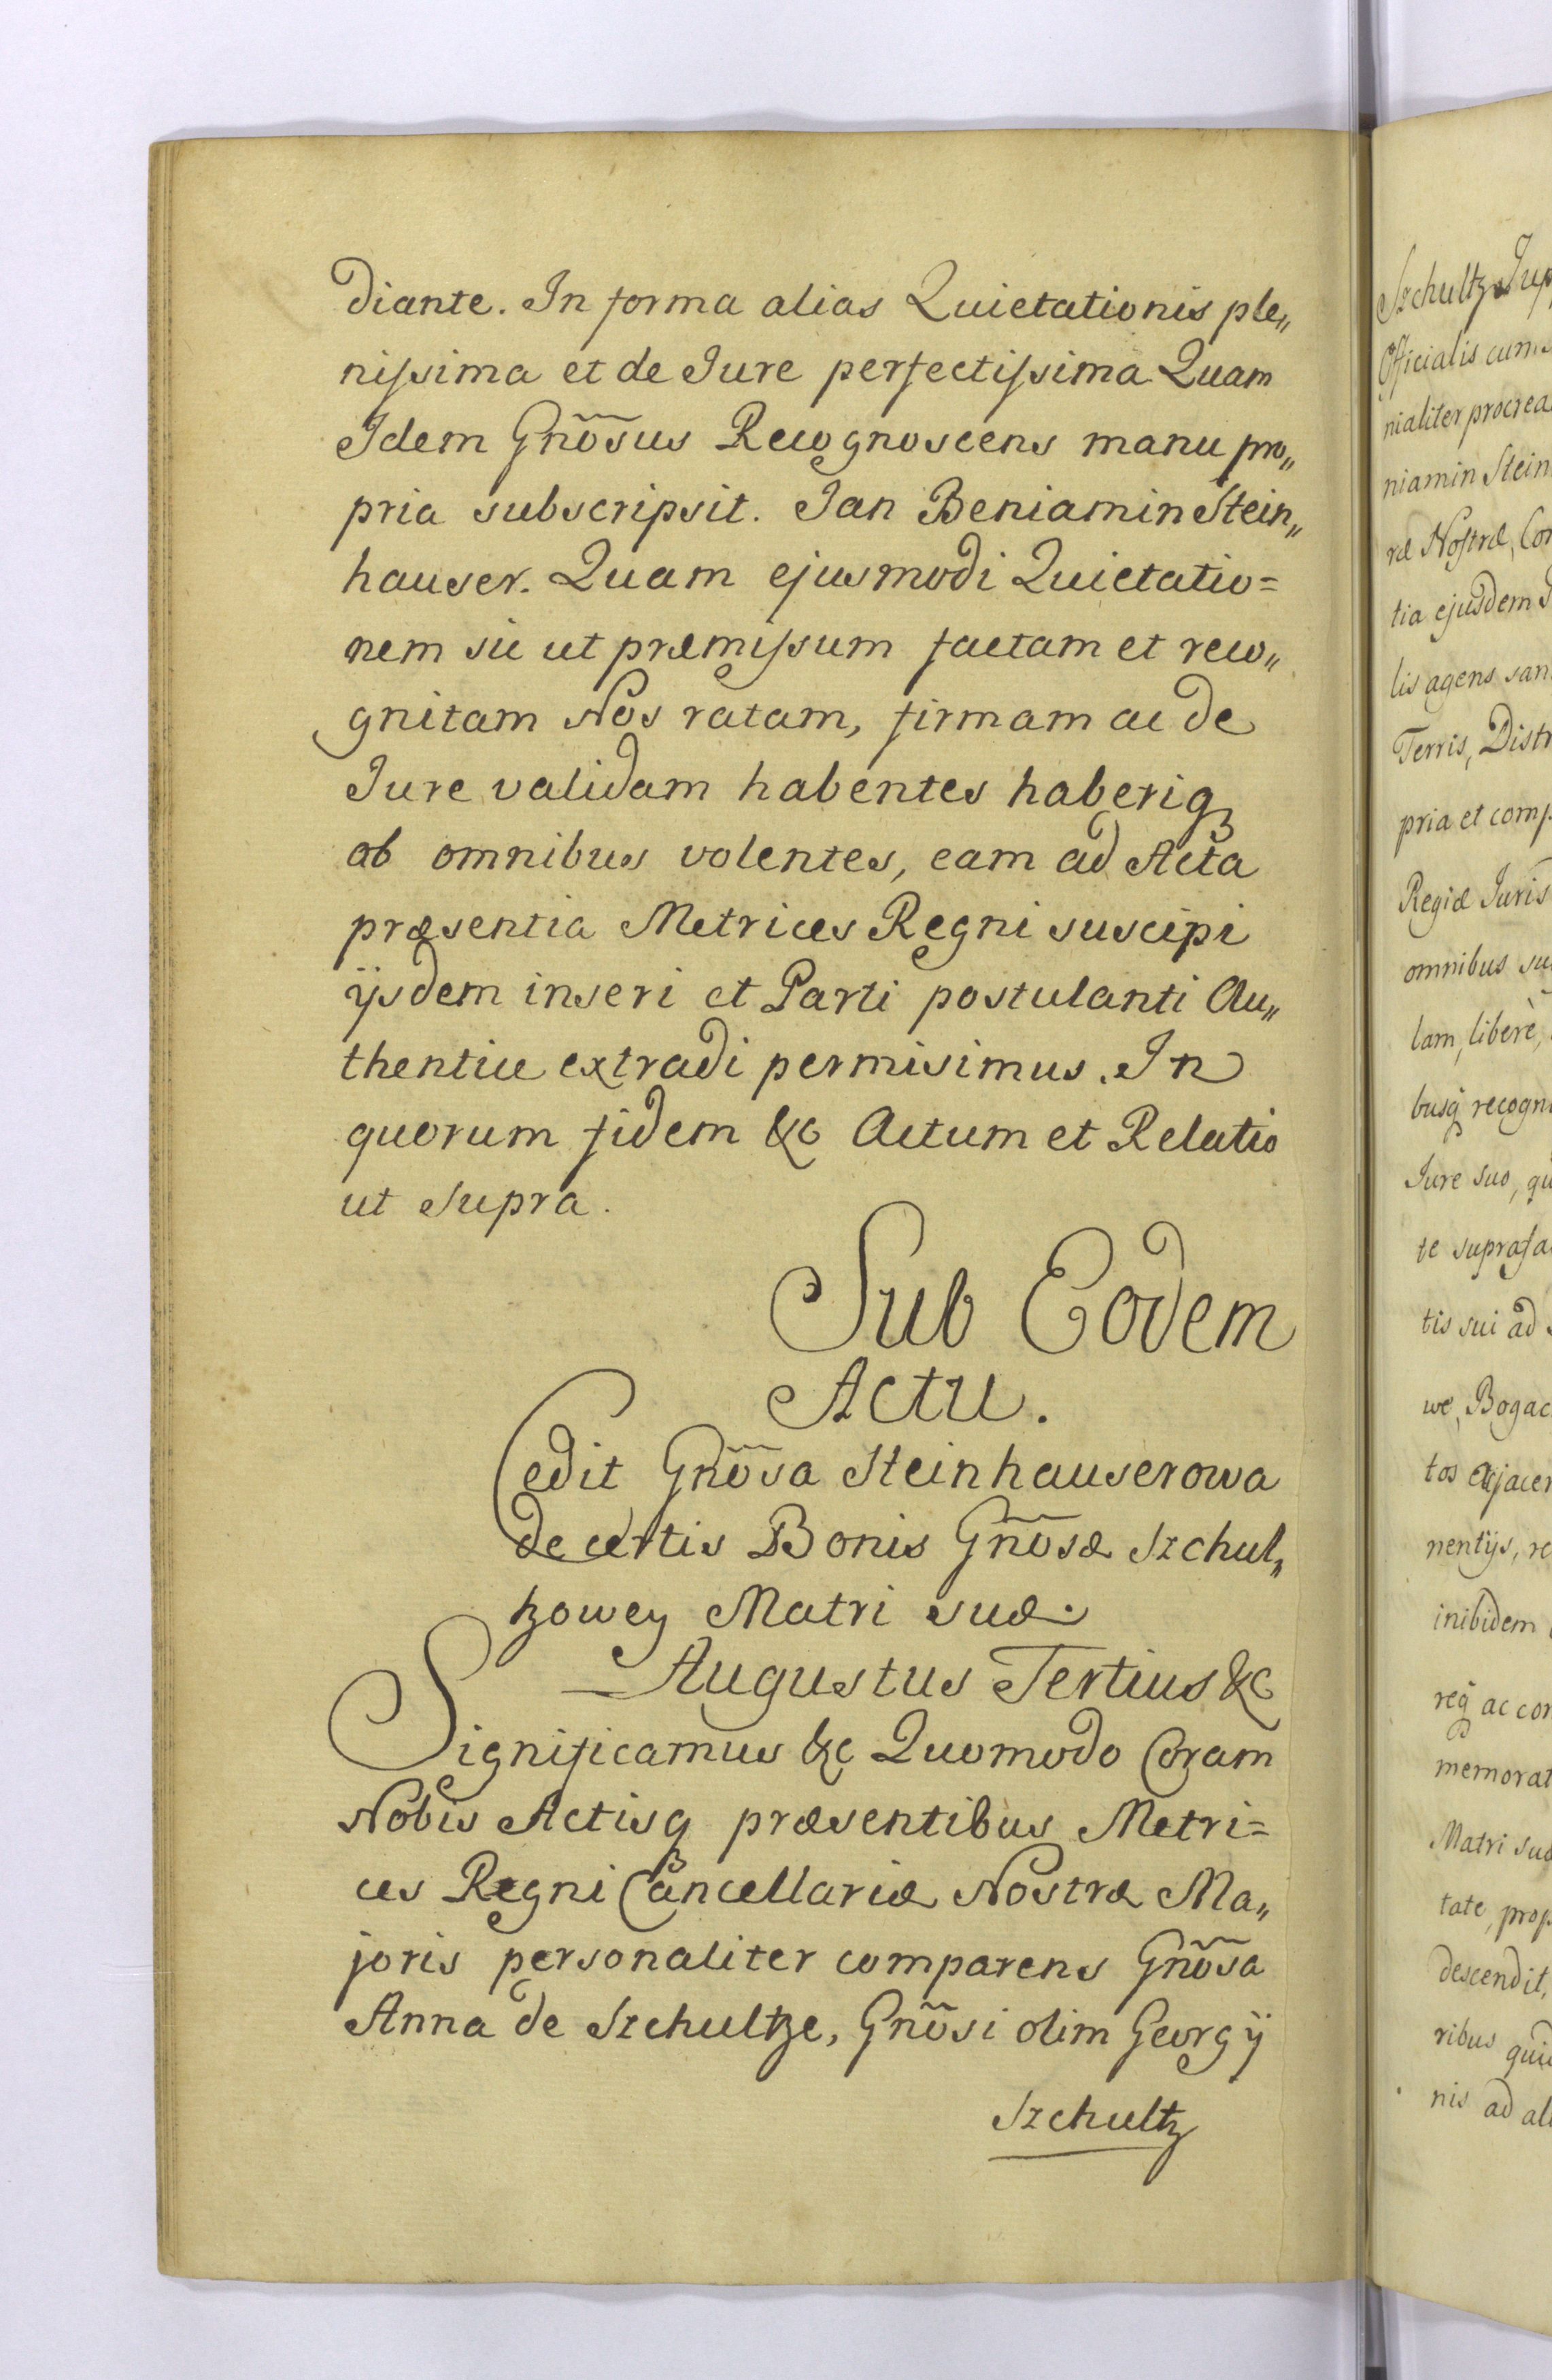 diante. In forma alias Quietationis ple„
nissima et de Jure perfectissima Quam
Idem Gnõsus Recognoscens manu pro„
pria subscripsit. Jan Beniamin Stein„
hauser. Quam ejusmodi Quietatio=
nem sic ut præmissum factam et reco„
gnitam Nos ratam, firmam ac de
Jure validam habentes haberiq3
ab omnibus volentes, eam ad Acta
præsentia Metrices Regni suscipi
ijsdem inseri et Parti postulanti Au„
thentice extradi permisimus. In
quorum fidem &c Actum et Relatio
ut Supra.
Sub Eodem
Actu.
Cedit Gnõsa Steinhauserowa
de certis Bonis Gnõsæ Szchul„
tzowey Matri suæ.
Augustus Tertius &c
Significamus &c Quomodo Coram
Nobis Actisq3 præsentibus Metri=
ces Regni Cancellariæ Nostræ Ma„
joris personaliter comparens Gnõsa
Anna de Szchultze, Gnõsi olim Georgij
Szchultz
Szchultz
Officialis cum
nialiter procrea
niamin Stein
ræ Nostræ, Con
tia ejusdem
lis agens san
Terris, Distr
pria et comp
Regiæ Juris
omnibus su
lam, liberè,
busq recogn
Jure suo, qu
te suprafa
tis sui ad
we, Bogac
tos
nentijs, re
inibidem
req ac con
memorat
Matri suæ
tate, prop
descendit,
ribus quie
nis ad ali